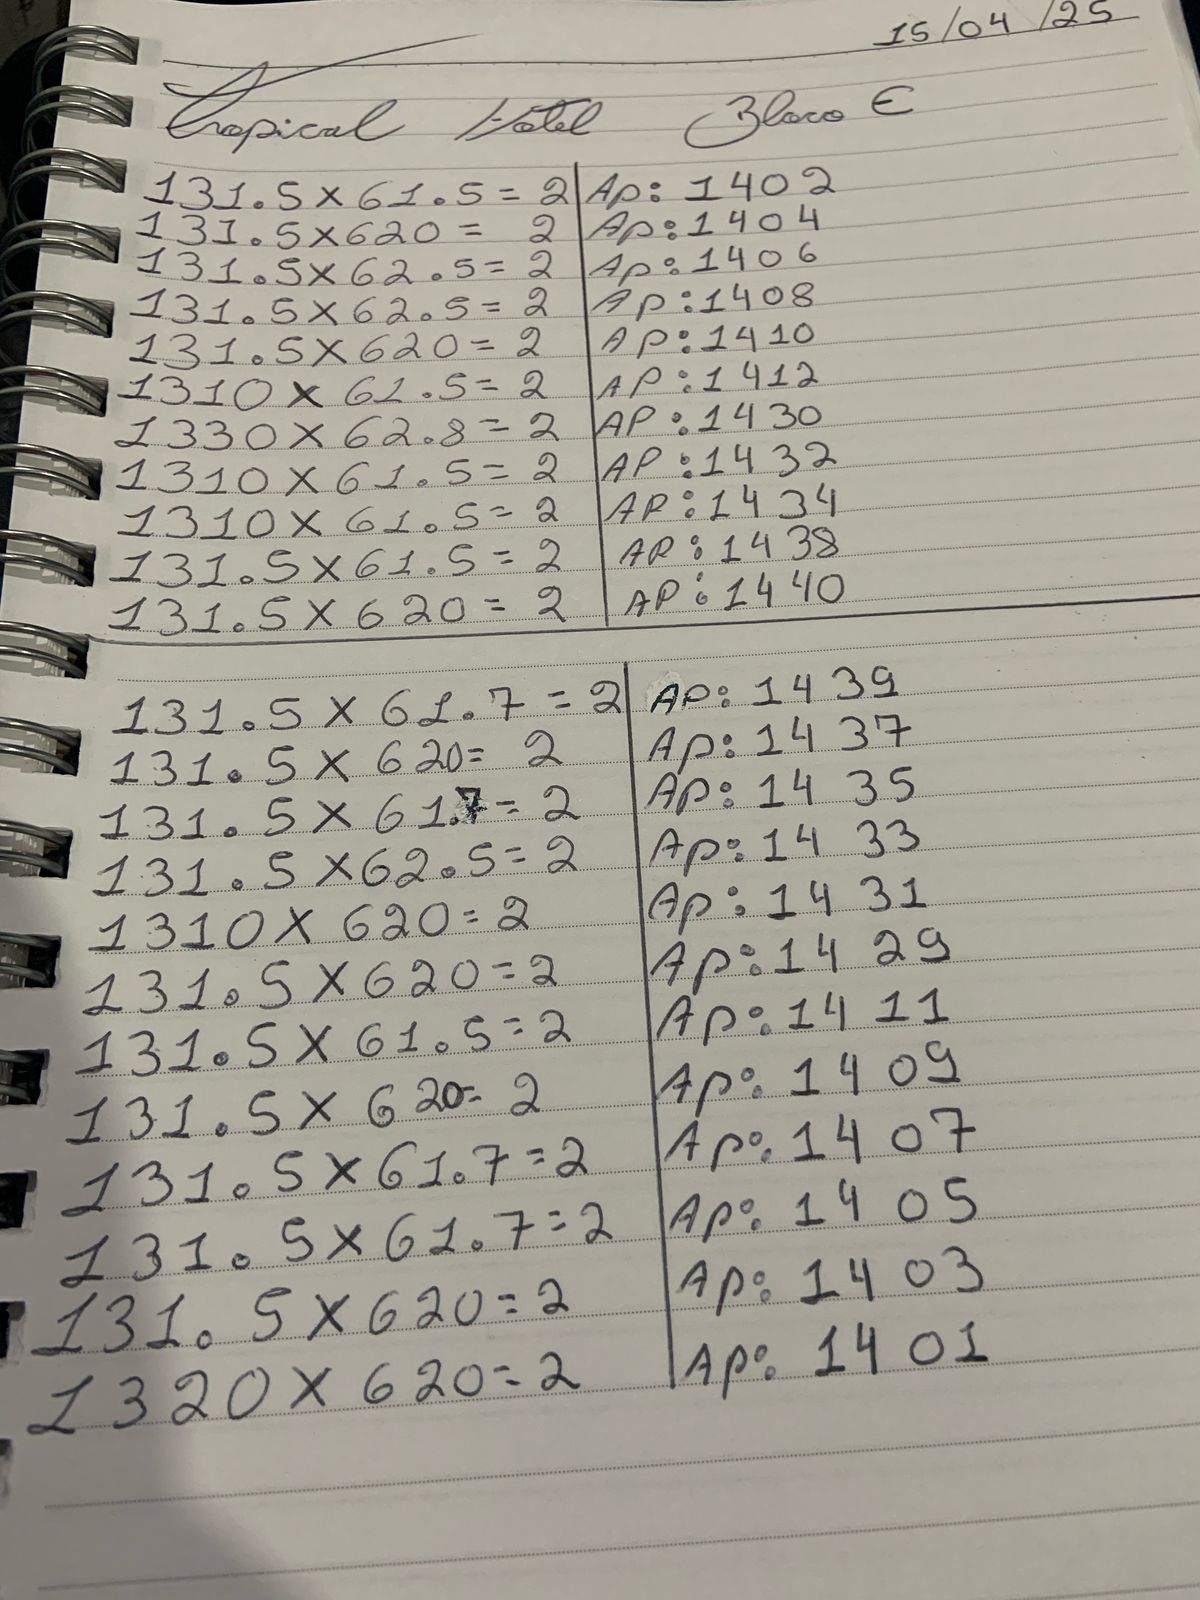 15/04/25
Tropical Hotel Bloco E
131.5 x 61.5 = 2 Ap: 1402
131.5 x 620 = 2 Ap: 1404
131.5 x 62.5 = 2 Ap: 1406
131.5 x 62.5 = 2 Ap: 1408
131.5 x 620 = 2 AP: 1410
1310 x 61.5 = 2 AP: 1412
1330 x 62.8 = 2 AP: 1430
1310 x 61.5 = 2 AP: 1432
1310 x 61.5 = 2 AP: 1434
131.5 x 61.5 = 2 AP: 1438
131.5 x 620 = 2 AP: 1440
131.5 x 61.7 = 2 Ap: 1439
131.5 x 620 = 2 Ap: 1437
131.5 x 61.7 = 2 Ap: 1435
131.5 x 62.5 = 2 Ap: 1433
1310 x 620 = 2 Ap: 1431
131.5 x 620 = 2 Ap: 1429
131.5 x 61.5 = 2 Ap: 1411
131.5 x 620 = 2 Ap: 1409
131.5 x 61.7 = 2 Ap: 1407
131.5 x 61.7 = 2 Ap: 1405
131.5 x 620 = 2 Ap: 1403
1320 x 620 = 2 Ap: 1401